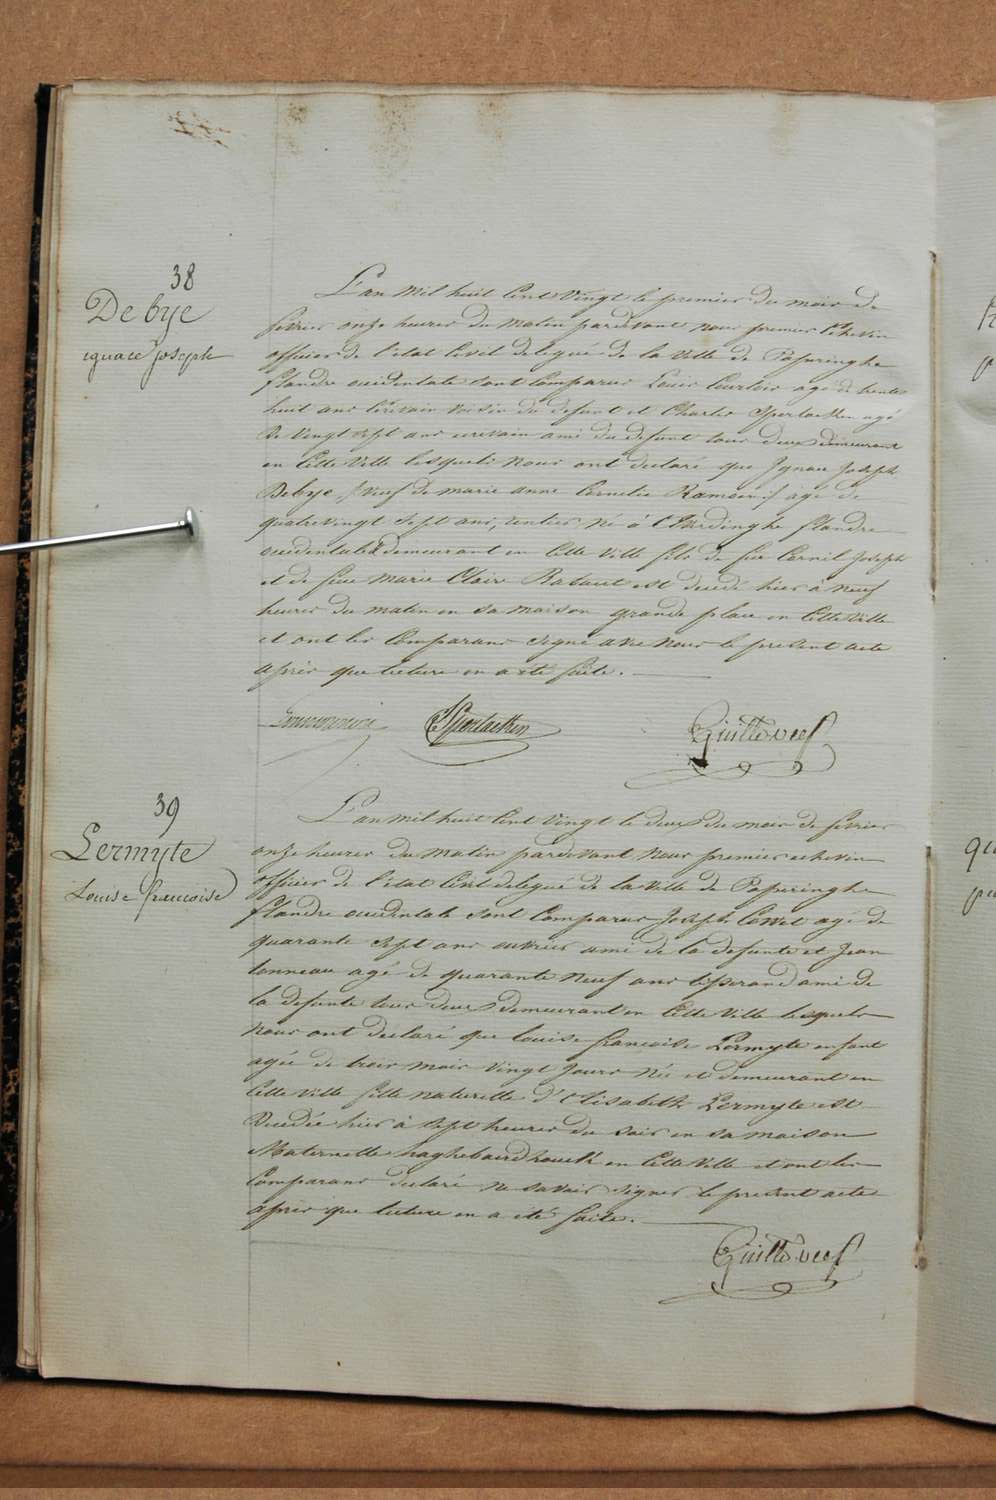 38
De bye
ignace joseph
L'an Mil huit Cent Vingt le premier du mois de
fevrier onze heures du Matin pardevant nous premier Echevin
officier de l'etat Civil delegué de la Ville de Poperinghe
flandre occidentale sont Comparus Louis Courtois agé de trente
huit ans Ecrivain voisin du defunt et Charles Sperlaeken agé
de Vingt sept ans ecrivain ami du defunt tous deux demeurant
en Cette Ville lesquels Nous ont declaré que Ignace Joseph
Debye Veuf de marie anne Cornelie agé de
quatrevingt sept ans, rentier né à flandre
occidentale & demeurant en Cette Ville fils de feu Cornil Joseph
et de feue Marie Claire est decedé hier à neuf
heures du matin en sa maison grande place en Cette Ville
et ont les Comparans signé avec Nous le present acte
après que lecture en a eté faite.
CSperlaeken
39
Lermyte
Louise francoise
L'an Mil huit Cent Vingt le deux du mois de fevrier
onze heures du Matin pardevant Nous premier echevin
officier de l'etat Civil delegué de la Ville de Poperinghe
flandre occidentale sont Comparus Joseph agé de
quarante sept ans ouvrier ami de la defunte et Jean
agé de quarante Neuf ans tisserand ami de
la defunte tous deux demeurant en Cette Ville lesquels
Nous ont declaré que louise françoise Lermyte enfant
agée de trois mois vingt jours Née et demeurant en
Cette Ville fille naturelle d'Elisabeth Lermyte est
Decedée hier à sept heures du soir en sa maison
Maternelle en Cette Ville et ont les
Comparans declaré ne savoir signer le present acte
après que lecture en a eté faite.